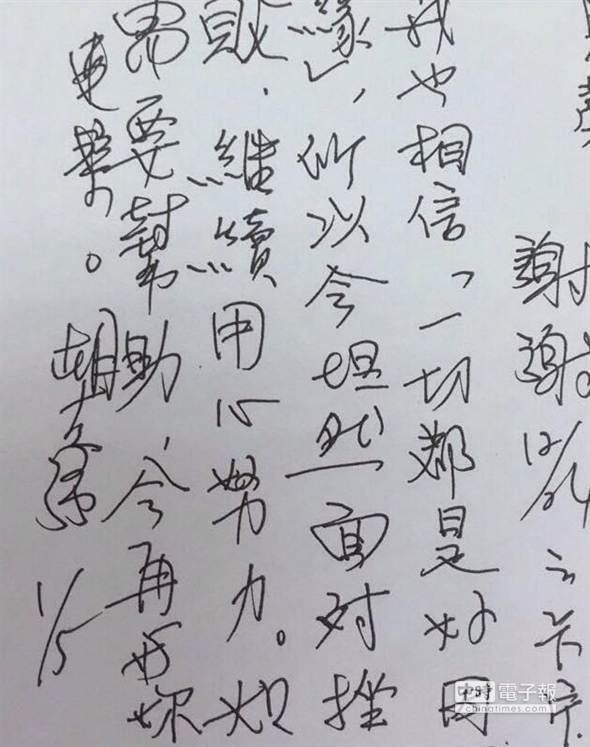 謝謝妳之卡片
我也相信「一切都是好因
緣」,所以会坦然面對挫
敗,繼續用心努力。如
需要幫助,会再与妳
連繫。胡志強 1/5
中時電子報
chinatimes.com